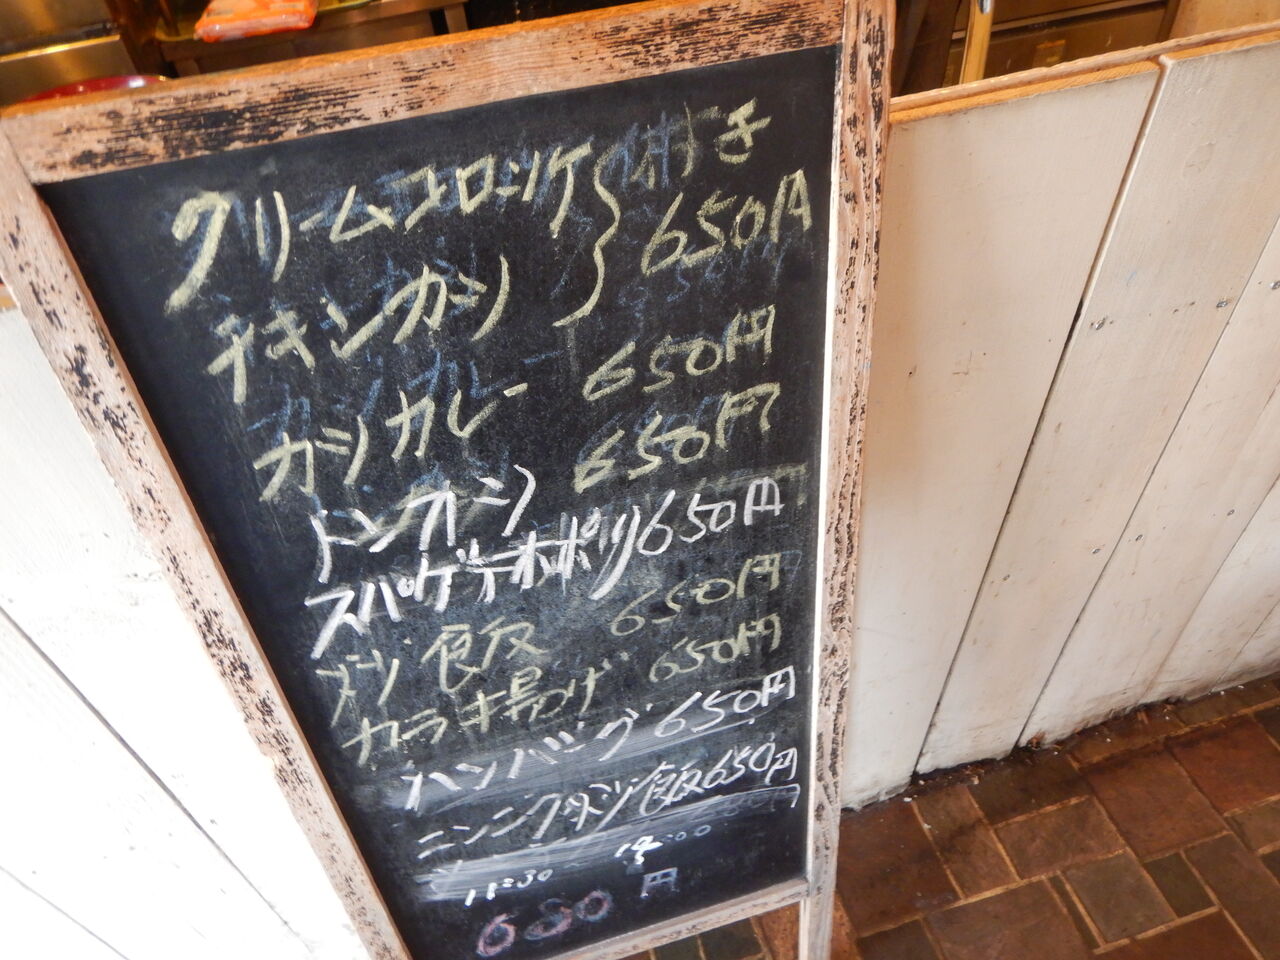 クリームコロッケ 付き
チキンカツ 650円
カツカレー 650円
トンカツ 650円
スパゲテナポリ 650円
ブタ飯 650円
カラキ揚げ 650円
ハンバーグ 650円
ニンニク 飯 650円
11:30
680円